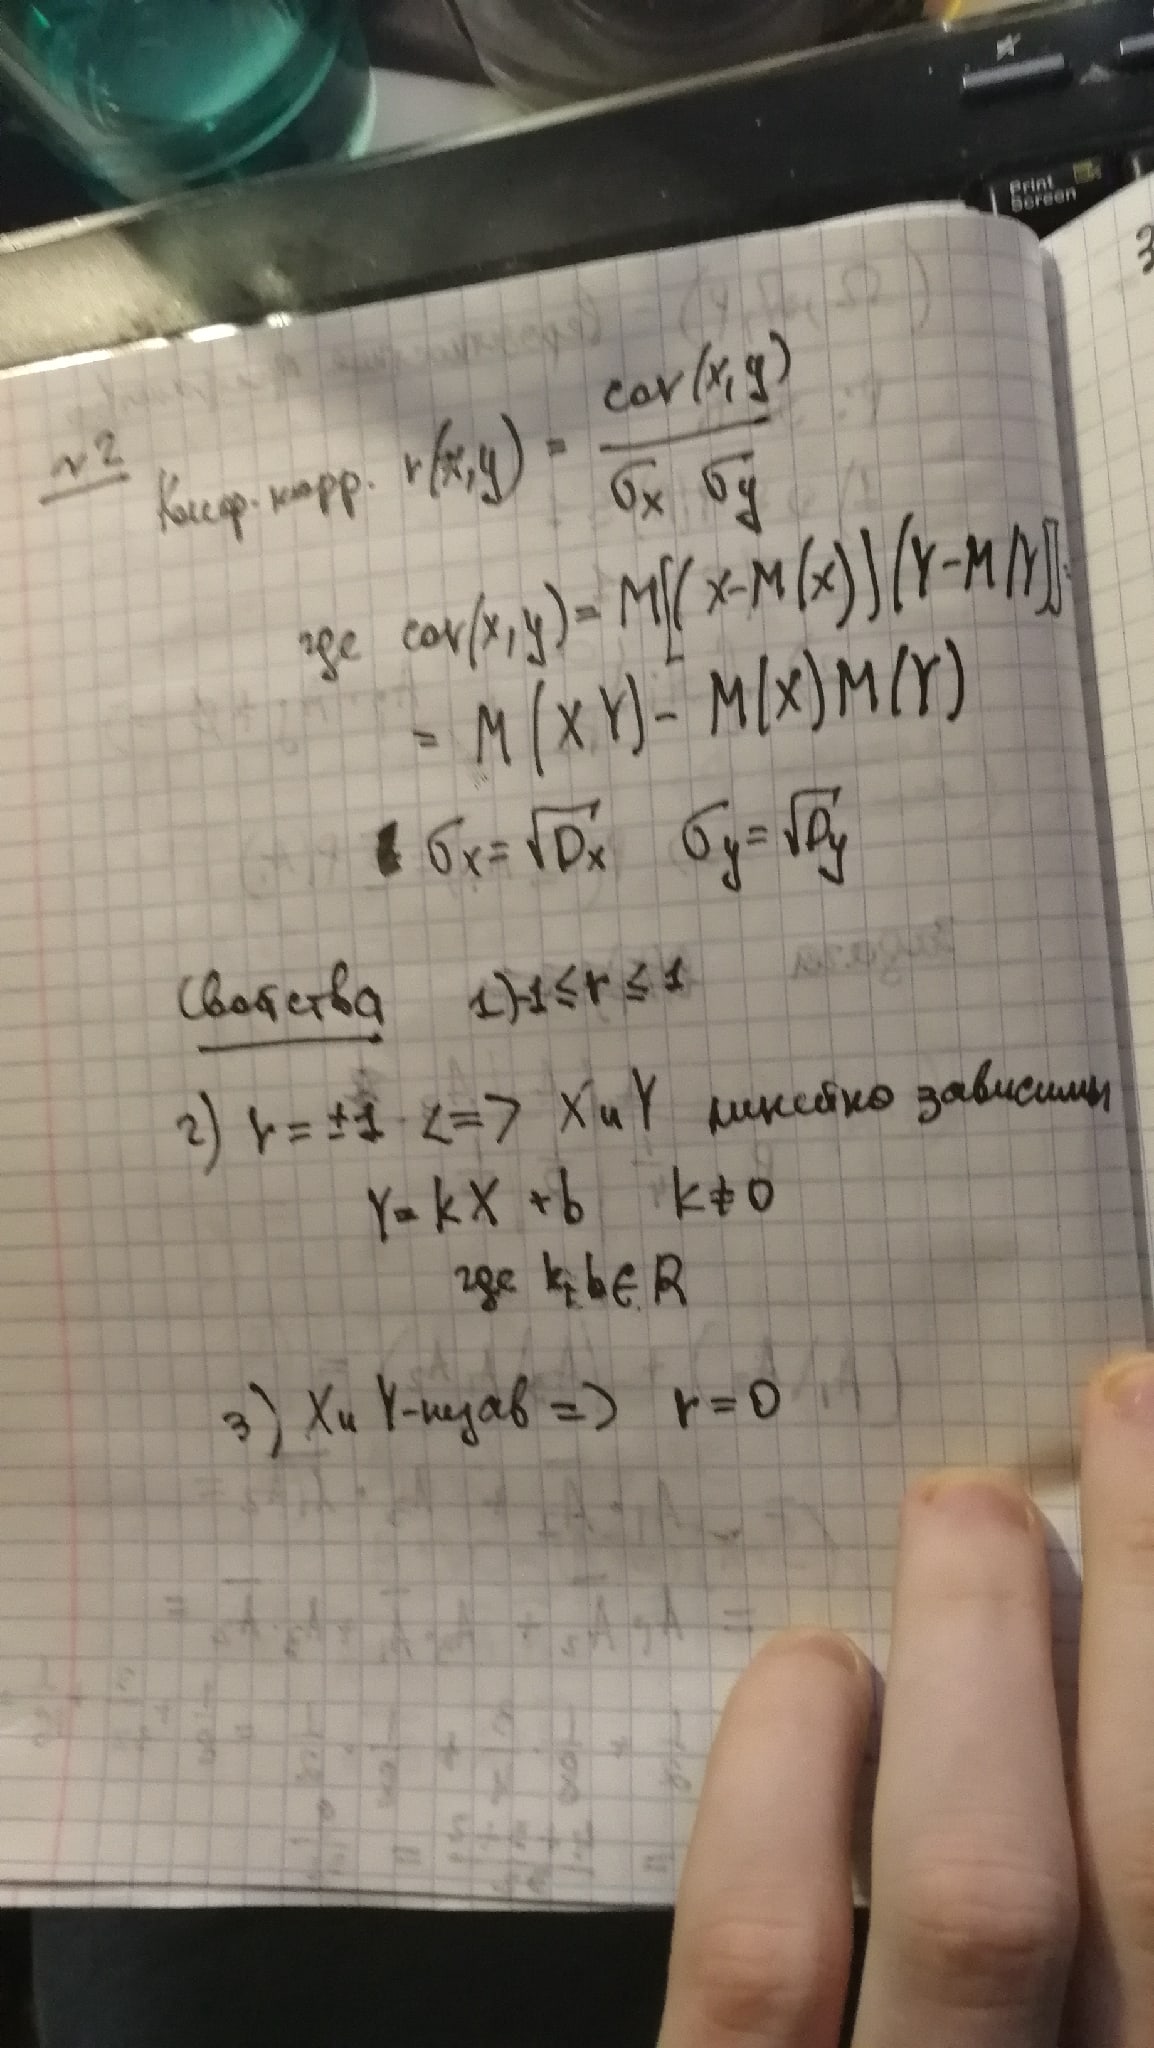 Print Screen
№2 Коэф. корр. r(x,y) = cov(x,y) / σx σy
где cov(x,y) = M[(X-M(X))(Y-M(Y)] =
= M(XY) - M(X)M(Y)
σx = √Dx σy = √Dy
Свойства 1) -1 ≤ r ≤ 1
2) r = ±1 <=> X и Y линейно зависимы
Y = kX + b k ≠ 0
где k, b ∈ R
3) X и Y - незав => r = 0